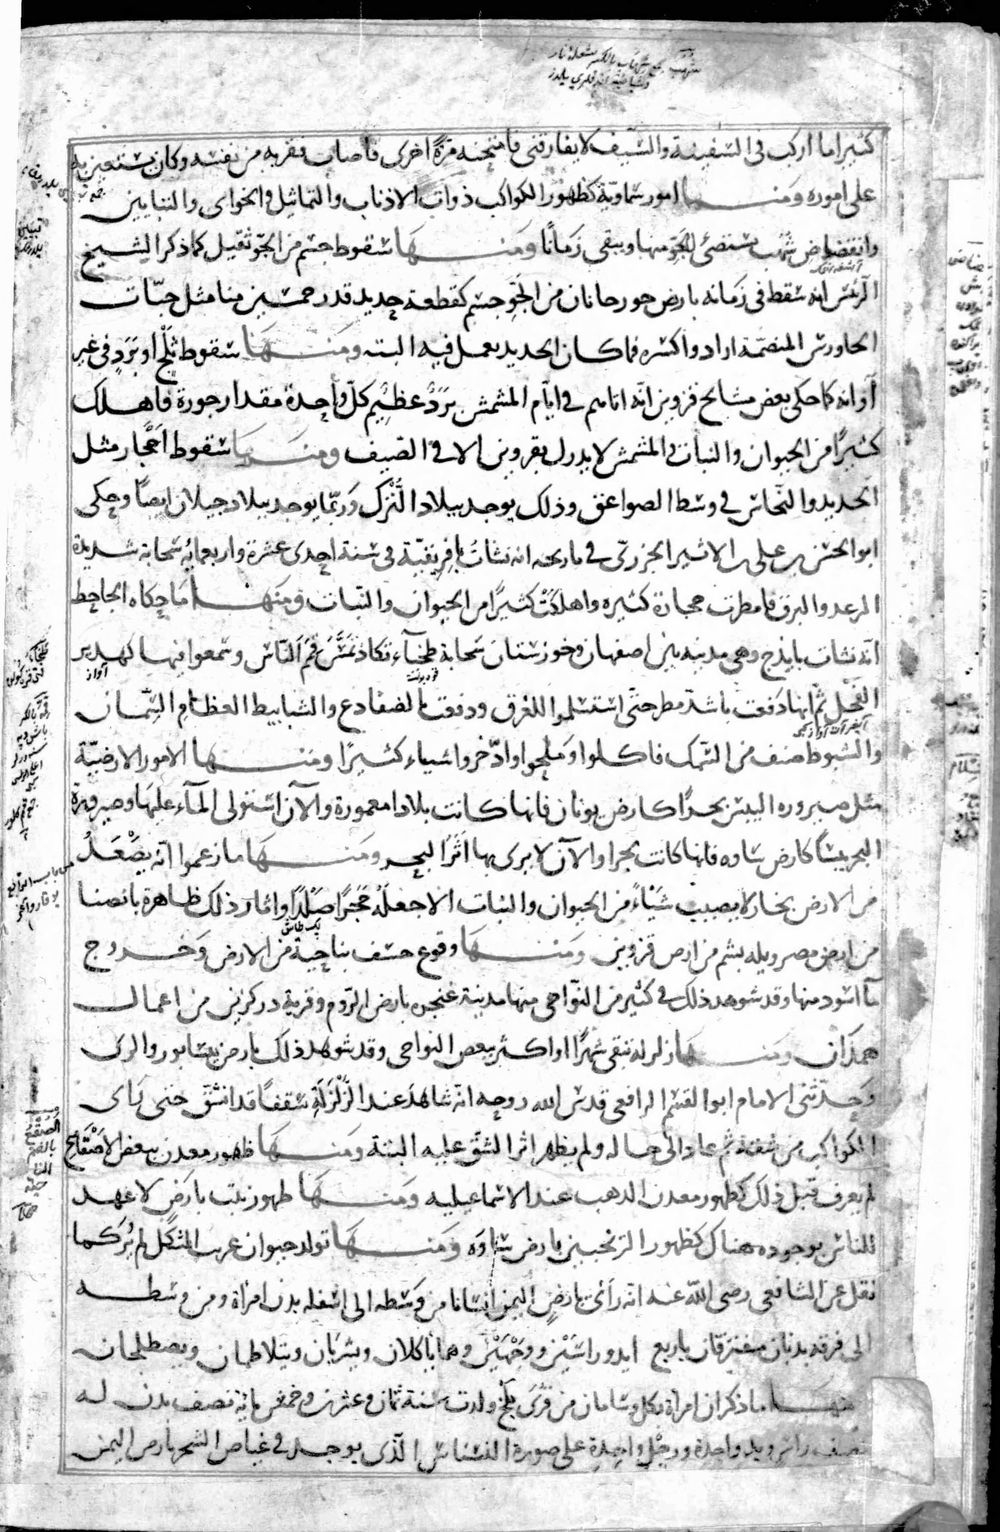 كثيرا ما اركب في السفينة والسيف لا يفارقني فامتحنه مرّة اخرى فاصاب فقربه من نفسه وكان يستعين به
على اموره ومنها امور سماوية كظهور الكواكب ذوات الاذناب والتماثيل في الخواى والتنانين
وانقضاض شهب يستضئ الجوّ منها ويبقى زمانًا ومنها سقوط جسم من الجوّ ثقيل كما ذكر الشيخ
الرئيس انه سقط في زمانه بارض جورجانان من الجوّ جسم كقطعة حديد قدر خمسين منا مثل حبّات
الجاورس المنضمّة ارادوا كسره فما كان الحديد يعمل فيه البتة ومنها سقوط ثلج او برد في غير
آوانه كما حكى بعض مشايخ قزوين انّه اتاهم في ايّام المشمش برد عظيم كلّ واحدة مقدار جوزة فاهلك
كثيرًا من الحيوان والنبات والمشمش لا يدرك بقزوين الا في الصيف ومنها سقوط احجار مثل
الحديد والنحاس في وسط الصواعق وذلك يوجد ببلاد الترك وربّما يوجد ببلاد جيلان ايضًا وحكى
ابو الحسن بن على بن الاثير الجزرى في تاريخه انه نشأت بافريقيّة في سنة احدى عشرة واربعمائة سحابة شديدة
الرعد والبرق فامطرت حجارة كثيرة واهلكت كثيرًا من الحيوان والنبات ومنها ما حكاه الجاحظ
انّه نشأت بايذج وهي مدينة بين اصفهان وخوزستان سحابة طخيآء تكاد تمسّ قمم النّاس وسمعوا فيها كهدير
الفحل ثم انها دفعت باشدّ مطر حتى استسلموا للغرق ودفعت بالضفادع والشبابيط العظام السِّمان
والشبوط صنف من السّمك فاكلوا وملحوا وادّخروا شياء كثيرًا ومنها الامور الارضيّة
مثل صيرورة اليبس بحرًا كارض يونان فانها كانت بلادا معمورة والآن استولى المآء عليها وصيرورة
البحر يبسًا كارض ساوه فانها كانت بحرا والآن لا يرى بها اثر البحر ومنها ما زعموا انّه يصعد
من الارض بخار لا يصيب شيًاء من الحيوان والنبات الا جعله حجرًا صلدًا واثار ذلك ظاهرة بانصنا
من ارض مصر ويله بشم من ارض قزوين ومنها وقوع خسف بناحية من الارض وخروج
مآ اسود منها وقد شوهد ذلك في كثير من النّواحى منها مدينة عنجره بارض الرّوم وقرية دركزين من اعمال
همذان ومنها زلزله تبقى شهرًا او اكثر ببعض النواحى وقد شوهد ذلك بارض نيسابور والرى
وحدّثنى الامام ابو القسم الرافعى قدس الله روحه انّه شاهد عند الزلزلة سقفًا قد انشقّ حتى رأى
الكواكب من شقه ثم عاد الى حاله ولم يظهر اثر الشقّ عليه البتة ومنها ظهور معدن ببعض الاصقاع
لم يعرف قبل ذلك كظهور معدن الذهب عند الاسماعيليه ومنها ظهور نبت بارض لا عهد
للناس بوجوده هناك كظهور الزنجبين بارض ساوه ومنها تولد حيوان غريب الشكل لم يُر كما
نقل عن الشافعى رضى اللّه عنه انّه رأى بارض اليمن انسانا من وسطه الى اسفله بدن امرأة ومن وسطه
الى فرقه بدنان مفترقان باربع ايد وراسَيْن ووجهَيْن وهما ياكلان ويشربان ويتلاطمان ويصطلحان
ومنها ما ذكر ان امرأة من قرى بلخ ولدت سنة ثمان وعشرين وخمس مائة نصف بدن له
نصف راس ويد واحدة ورجل واحدة على صورة النسناس الّذى يوجد في غياض الشحر بارض اليمن